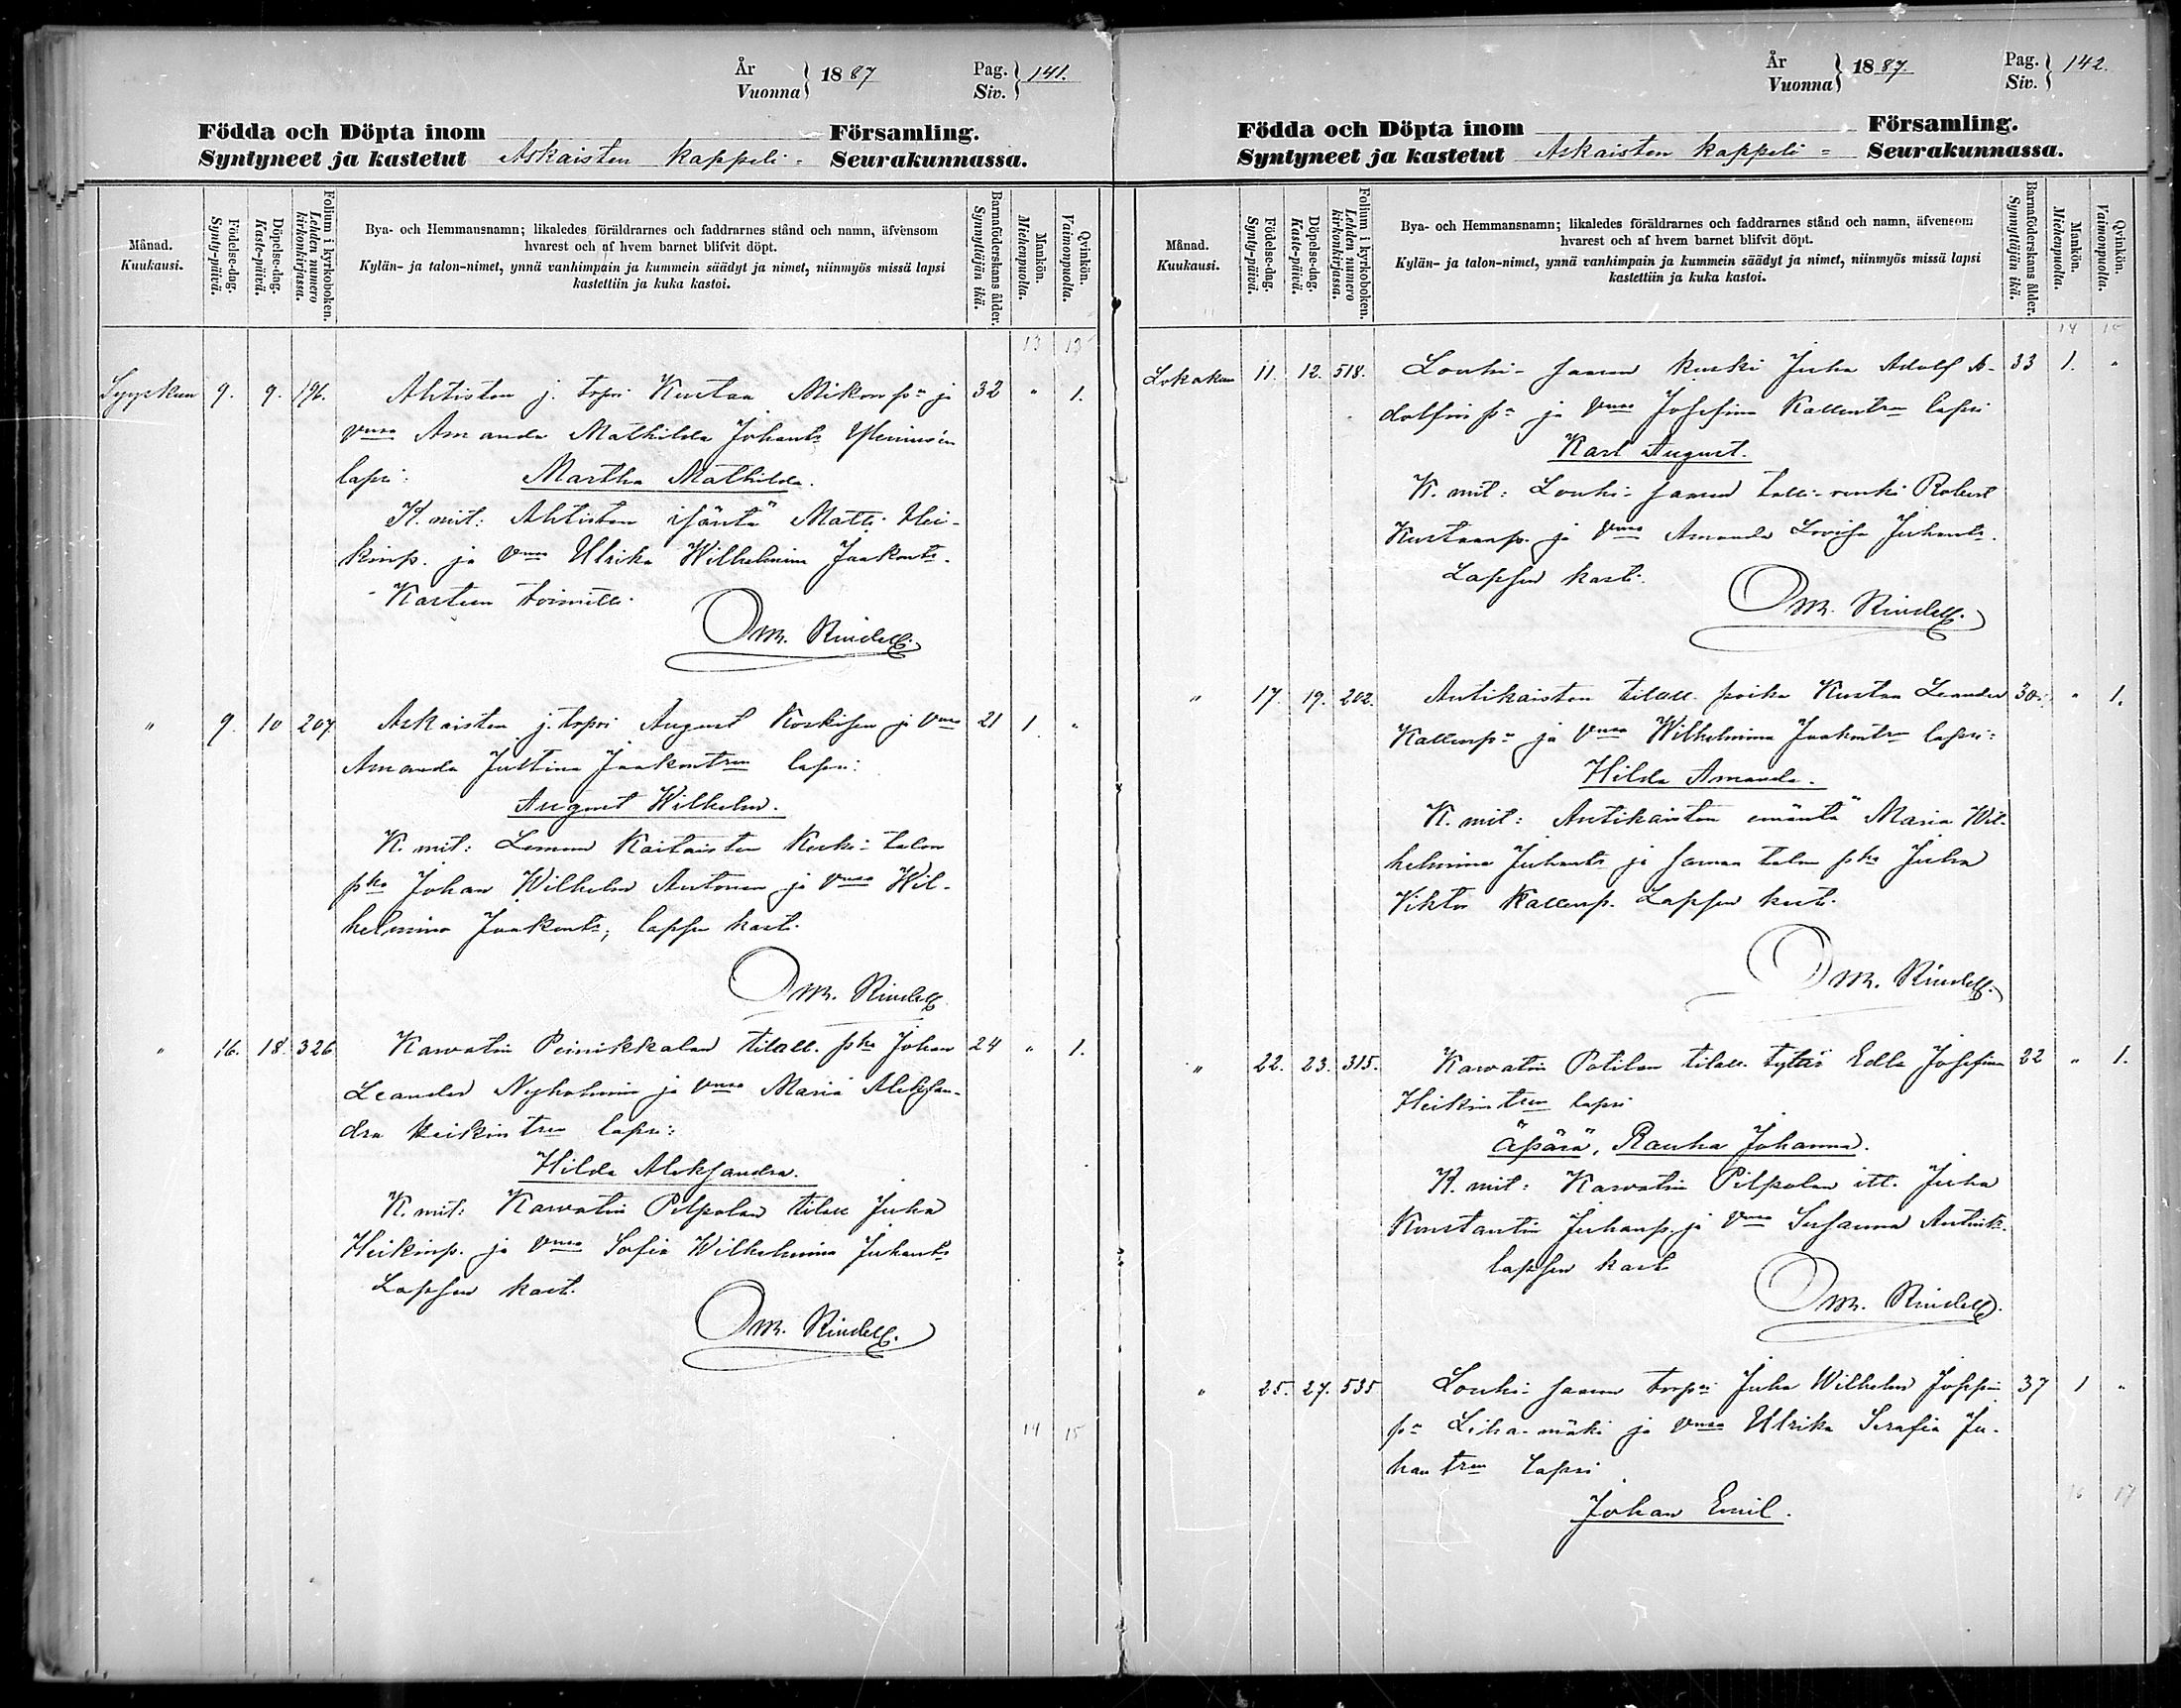 År
Vuonna } 1887
Pag.
Siv. } 141.
Födda och Döpta inom Församling.
Syntyneet ja kastetut Askaisten kappeli- Seurakunnassa.
Månad.
Kuukausi.
Födelse-dag.
Synty-päivä.
Döpelse-dag.
Kaste-päivä.
Folium i kyrkoboken.
Lehden numero
kirkonkirjassa.
Bya- och Hemmansnamn; likaledes föräldrarnes och faddrarnes stånd och namn, äfvensom
hvarest och af hvem barnet blifvit döpt.
Kylän- ja talon-nimet, ynnä vanhimpain ja kummein säädyt ja nimet, niinmyös missä lapsi
kastettiin ja kuka kastoi.
Barnaföderskans ålder.
Synnyttäjän ikä.
Mankön.
Miehenpuolta.
Qvinkön.
Vaimonpuolta.
13 13
Syyskuu 9. 9. 196. Ahtisten j. torpri Kustaa Mikonp:n ja 32 " 1.
vmsa Amanda Mathilda Johants
lapsi: Martha Mathilda.
K. mit: Ahtisten isäntä Matti Hei-
kinp. ja vmsa Ulrika Wilhelmina Jaakonts.
Kasteen toimitti
Om. Rindell.
" 9. 10 207 Askaisten j. torpri August Koskisen ja vmsa 21 1 "
Amanda Justina Jaakontren lapsi:
August Wilhelm.
K. mit: Lemun Kaitaisten Keski-talon
pka Johan Wilhelm Antonen ja vmsa Wil-
helmina Jaakonts; lapsen kast.
Om. Rindell
" 16. 18. 326 Karvatin Peinikkalan tilall. pka Johan 24 " 1.
Leander Nyholmin ja vmsa Maria Aleksan-
dra Heikintren lapsi:
Hilda Aleksandra.
K. mit: Karvatin Pilpolan tilall Juha
Heikinp. ja vmsa Sofia Wilhelmina Juhants
Lapsen kast.
Om. Rindell.
14 15
År
Vuonna } 1887.
Pag.
Siv. } 142.
Födda och Döpta inom Församling.
Syntyneet ja kastetut Askaisten kappeli- Seurakunnassa.
Månad.
Kuukausi.
Födelse-dag.
Synty-päivä.
Döpelse-dag.
Kaste-päivä.
Folium i kyrkoboken.
Lehden numero
kirkonkirjassa.
Bya- och Hemmansnamn; likaledes föräldrarnes och faddrarnes stånd och namn, äfvensom
hvarest och af hvem barnet blifvit döpt.
Kylän- ja talon-nimet, ynnä vanhimpain ja kummein säädyt ja nimet, niinmyös missä lapsi
kastettiin ja kuka kastoi.
Barnaföderskans ålder.
Synnyttäjän ikä.
Mankön.
Miehenpuolta.
Qvinkön.
Vaimonpuolta.
14 15
Lokakuu 11. 12. 518. Louhi-saaren Juha Adolf A- 33 1. "
dolfin p:n ja vmsa Josefina Kallentren lapsi
Karl August.
K. mit: Louhi-saaren talli-renki Robert
Kustaanp. ja vmsa Amanda Lovisa Juhants.
Lapsen kast.
Om. Rindell.
" 17. 19. 202. Antikaisten tilall. poika Kustaa Leander 30. " 1.
Kallenp:n ja vmsa Wilhelmina Jaakontren lapsi:
Hilda Amanda.
K. mit: Antikaisten emäntä Maria Wil-
helmina Juhants ja saman talon pka Juha
Viktor Kallenp. Lapsen kast.
Om. Rindell.
" 22. 23. 315. Karvatin Potilan tilall. tytär Edla Josefina 22 " 1.
Heikintren lapsi
äpärä, Rauha Johanna.
K. mit: Karvatin Pilpolan itl. Juha
Konstantin Juhanp. ja vmsa Susanna Antints.
lapsen kast
Om. Rindell.
" 25. 27. 535 Louhi-saaren torpri Juha Wilhelm Joppin 37 1 "
p:n Liha-mäki ja vmsa Ulrika Serafia Ju-
hantren lapsi
Johan Emil.
16 17